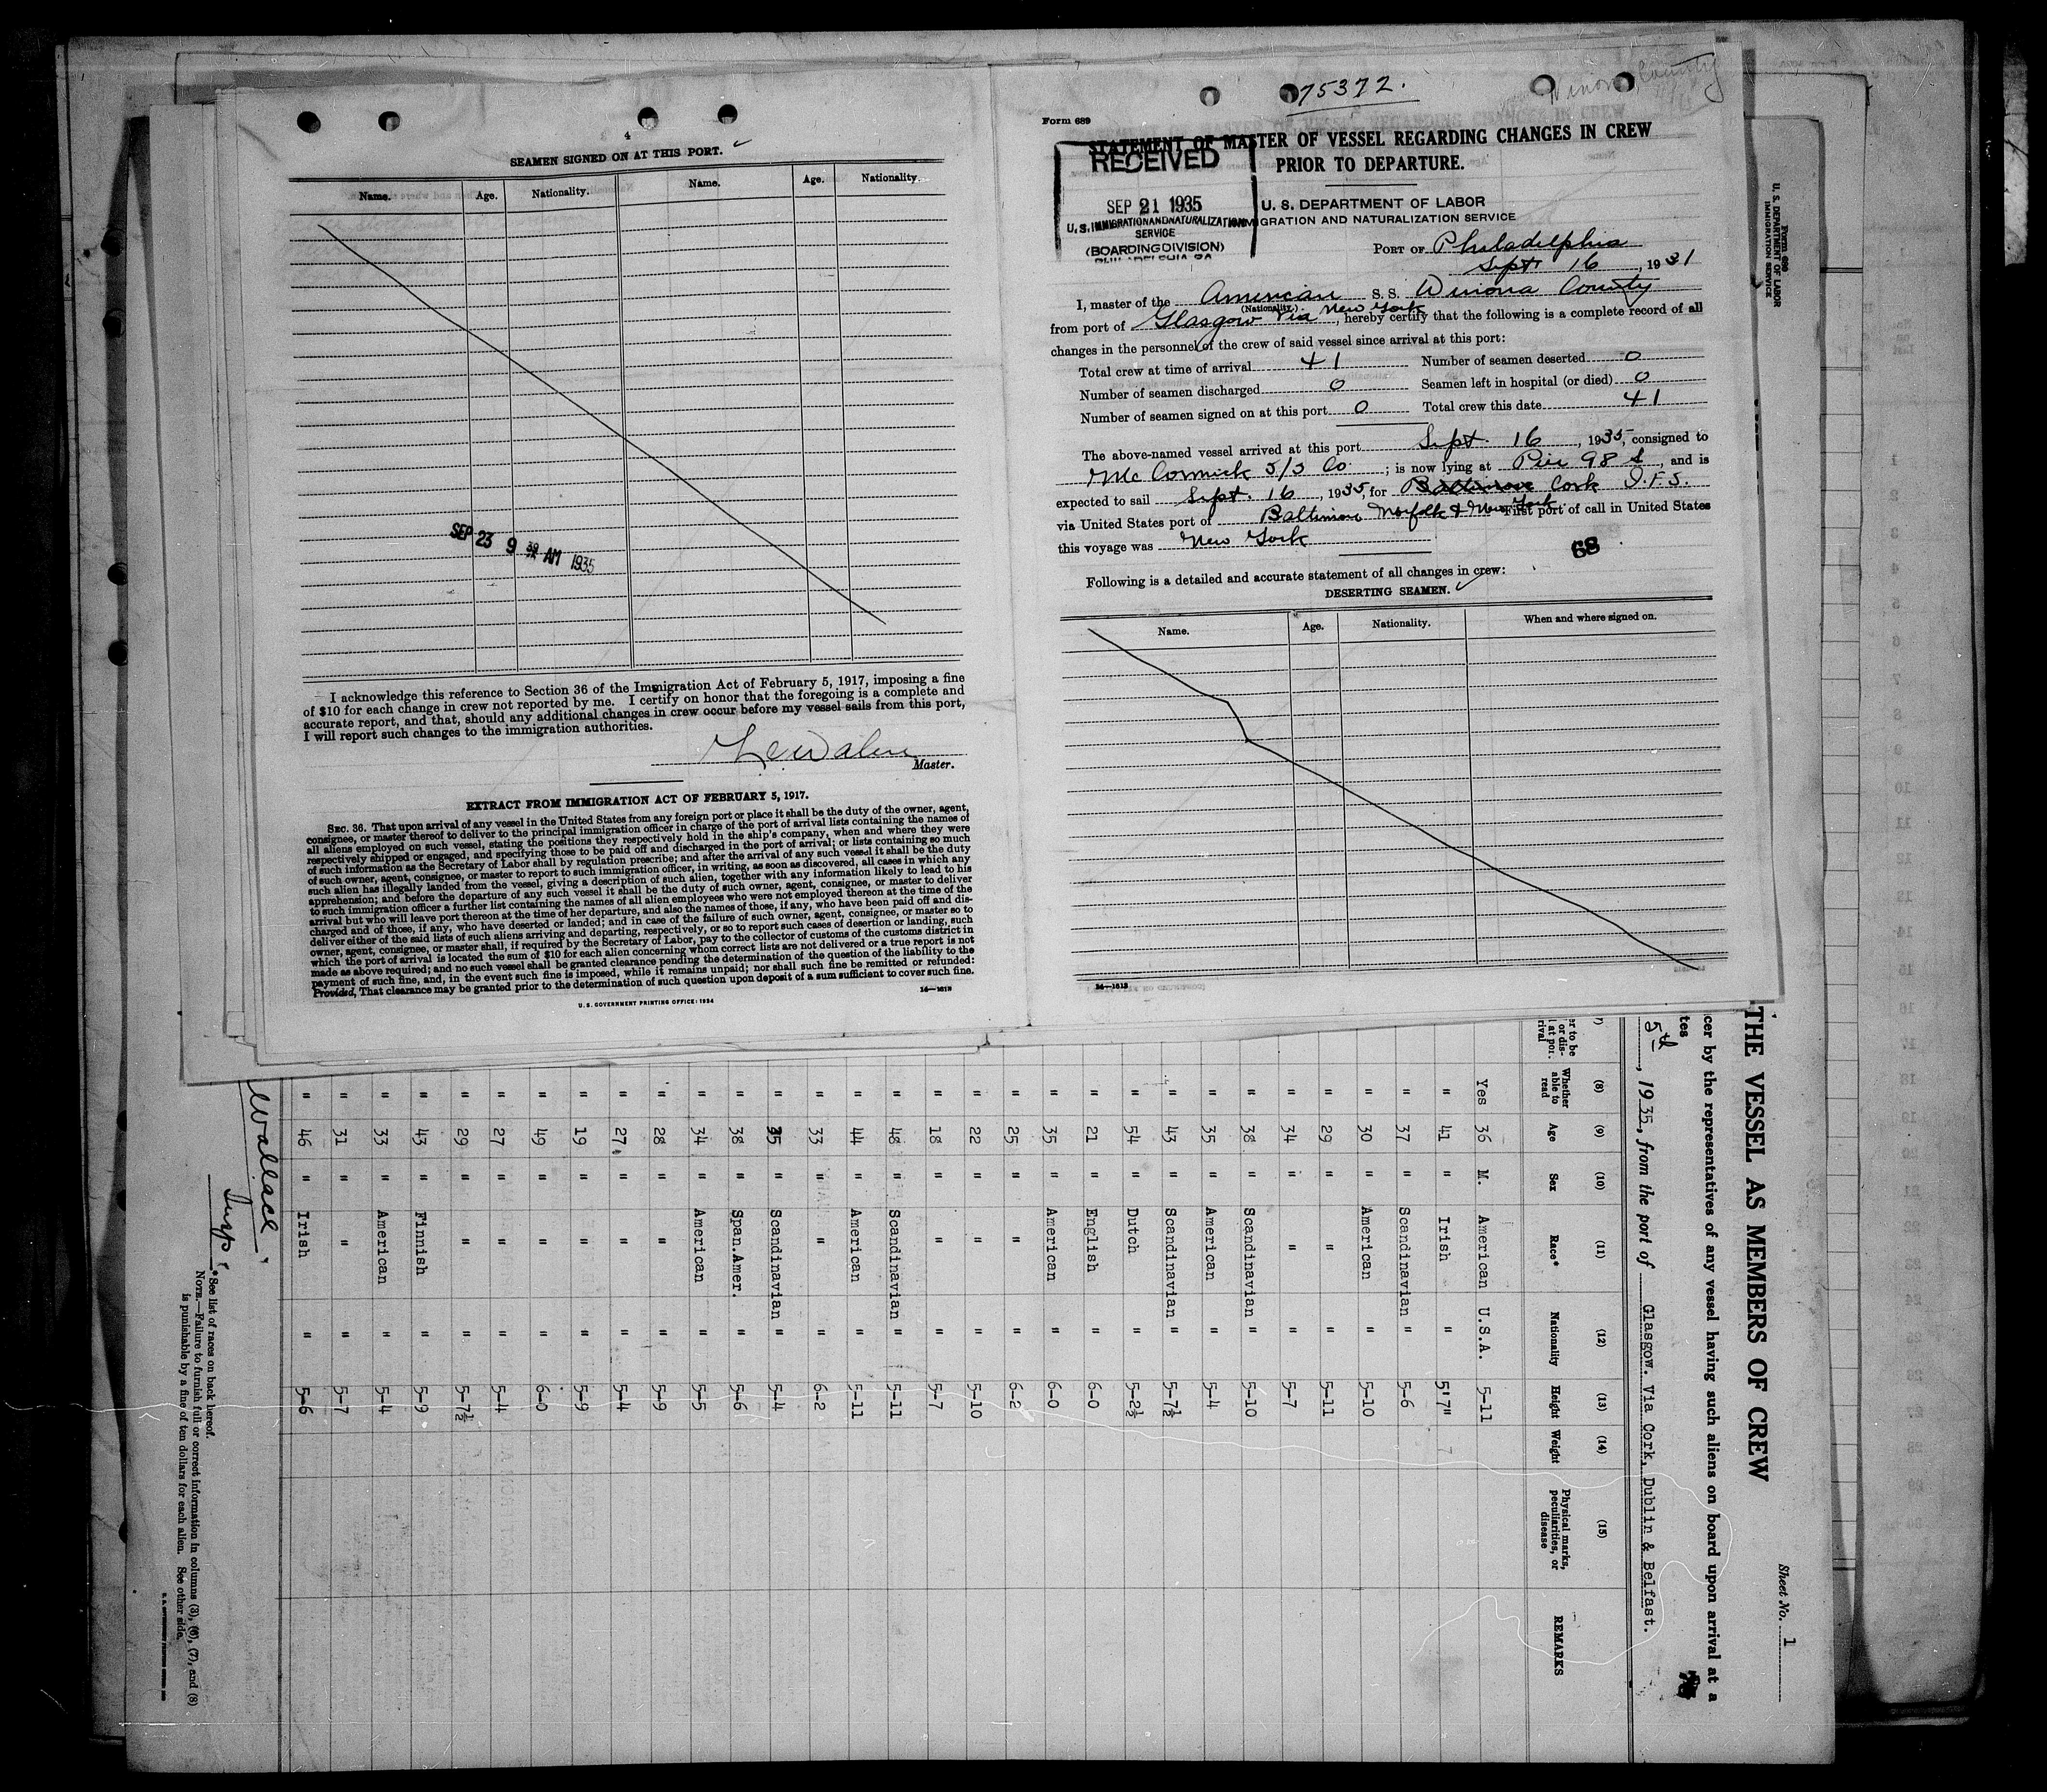 4
SEAMEN SIGNED ON AT THIS PORT.
Name. Age. Nationality. Name. Age. Nationality.
SEP 23 9 AM 1935
I acknowledge this reference to Section 36 of the Immigration Act of February 5, 1917, imposing a fine
of $10 for each change in crew not reported by me. I certify on honor that the foregoing is a complete and
accurate report, and that, should any additional changes in crew occur before my vessel sails from this port,
I will report such changes to the immigration authorities.
Master.
EXTRACT FROM IMMIGRATION ACT OF FEBRUARY 5, 1917.
SEC. 36. That upon arrival of any vessel in the United States from any foreign port or place it shall be the duty of the owner, agent,
consignee, or master thereof to deliver to the principal immigration officer in charge of the port of arrival lists containing the names of
all aliens employed on such vessel, stating the positions they respectively hold in the ship's company, when and where they were
respectively shipped or engaged, and specifying those to be paid off and discharged in the port of arrival; or lists containing so much
of such information as the Secretary of Labor shall by regulation prescribe; and after the arrival of any such vessel it shall be the duty
of such owner, agent, consignee, or master to report to such immigration officer, in writing, as soon as discovered, all cases in which any
such alien has illegally landed from the vessel, giving a description of such alien, together with any information likely to lead to his
apprehension; and before the departure of any such vessel it shall be the duty of such owner, agent, consignee, or master to deliver
to such immigration officer a further list containing the names of all alien employees who were not employed thereon at the time of the
arrival but who will leave port thereon at the time of her departure, and also the names of those, if any, who have been paid off and dis-
charged and of those, if any, who have deserted or landed; and in case of the failure of such owner, agent, consignee, or master so to
deliver either of the said lists of such aliens arriving and departing, respectively, or so to report such cases of desertion or landing, such
owner, agent, consignee, or master shall, if required by the Secretary of Labor, pay to the collector of customs of the customs district in
which the port of arrival is located the sum of $10 for each alien concerning whom correct lists are not delivered or a true report is not
made as above required; and no such vessel shall be granted clearance pending the determination of the question of the liability to the
payment of such fine, and, in the event such fine is imposed, while it remains unpaid; nor shall such fine be remitted or refunded:
Provided, That clearance may be granted prior to the determination of such question upon deposit of a sum sufficient to cover such fine.
U. S. GOVERNMENT PRINTING OFFICE: 1934
14—1613
75372.
Winona County
Form 689
STATEMENT OF MASTER OF VESSEL REGARDING CHANGES IN CREW
PRIOR TO DEPARTURE.
RECEIVED
SEP 21 1935
U. S. IMMIGRATION AND NATURALIZATION
SERVICE
(BOARDING DIVISION)
PHILADELPHIA PA
U. S. DEPARTMENT OF LABOR
IMMIGRATION AND NATURALIZATION SERVICE
PORT OF Philadelphia
Sept 16, 1931
I, master of the American S. S. Winona County
(Nationality.)
from port of Glasgow Via New York, hereby certify that the following is a complete record of all
changes in the personnel of the crew of said vessel since arrival at this port:
Total crew at time of arrival 41 Number of seamen deserted 0
Number of seamen discharged 0 Seamen left in hospital (or died) 0
Number of seamen signed on at this port 0 Total crew this date 41
The above-named vessel arrived at this port Sept. 16, 1935, consigned to
McCormick S/S Co.; is now lying at Pier 98 S, and is
expected to sail Sept. 16, 1935, for Baltimore Cork I.F.S.
via United States port of Baltimore Norfolk & New York. First port of call in United States
this voyage was New York
68
Following is a detailed and accurate statement of all changes in crew:
DESERTING SEAMEN.
Name. Age. Nationality. When and where signed on.
14—1613
Form 689
U. S. DEPARTMENT OF LABOR
IMMIGRATION SERVICE
Sheet No. 1
THE VESSEL AS MEMBERS OF CREW
cer by the representatives of any vessel having such aliens on board upon arrival at a
tes
5th, 1935, from the port of Glasgow. Via Cork, Dublin & Belfast.
(8) (9) (10) (11) (12) (13) (14) (15)
Whether able to read Age Sex Race* Nationality Height Weight Physical marks, peculiarities, or disease REMARKS
Yes 36 M. American U.S.A. 5-11
" 41 " Irish " 5'7"
" 37 " Scandinavian " 5-6
" 30 " American " 5-10
" 29 " " " 5-11
" 34 " " " 5-7
" 38 " Scandinavian " 5-10
" 35 " American " 5-4
" 43 " Scandinavian " 5-7½
" 54 " Dutch " 5-2½
" 21 " English " 6-0
" 35 " American " 6-0
" 25 " " " 6-2
" 22 " " " 5-10
" 18 " " " 5-7
" 48 " Scandinavian " 5-11
" 44 " American " 5-11
" 33 " " " 6-2
" 35 " Scandinavian " 5-4
" 38 " Span.Amer. " 5-6
" 34 " American " 5-5
" 28 " " " 5-9
" 27 " " " 5-4
" 19 " " " 5-9
" 49 " " " 6-0
" 27 " " " 5-4
" 29 " " " 5-7½
" 43 " Finnish " 5-9
" 33 " American " 5-4
" 31 " " " 5-7
" 46 " Irish " 5-6
Wallace
Insp
*See list of races on back hereof.
NOTE.—Failure to furnish full or correct information in columns (3), (6), (7), and (8)
is punishable by a fine of ten dollars for each alien. See other side.